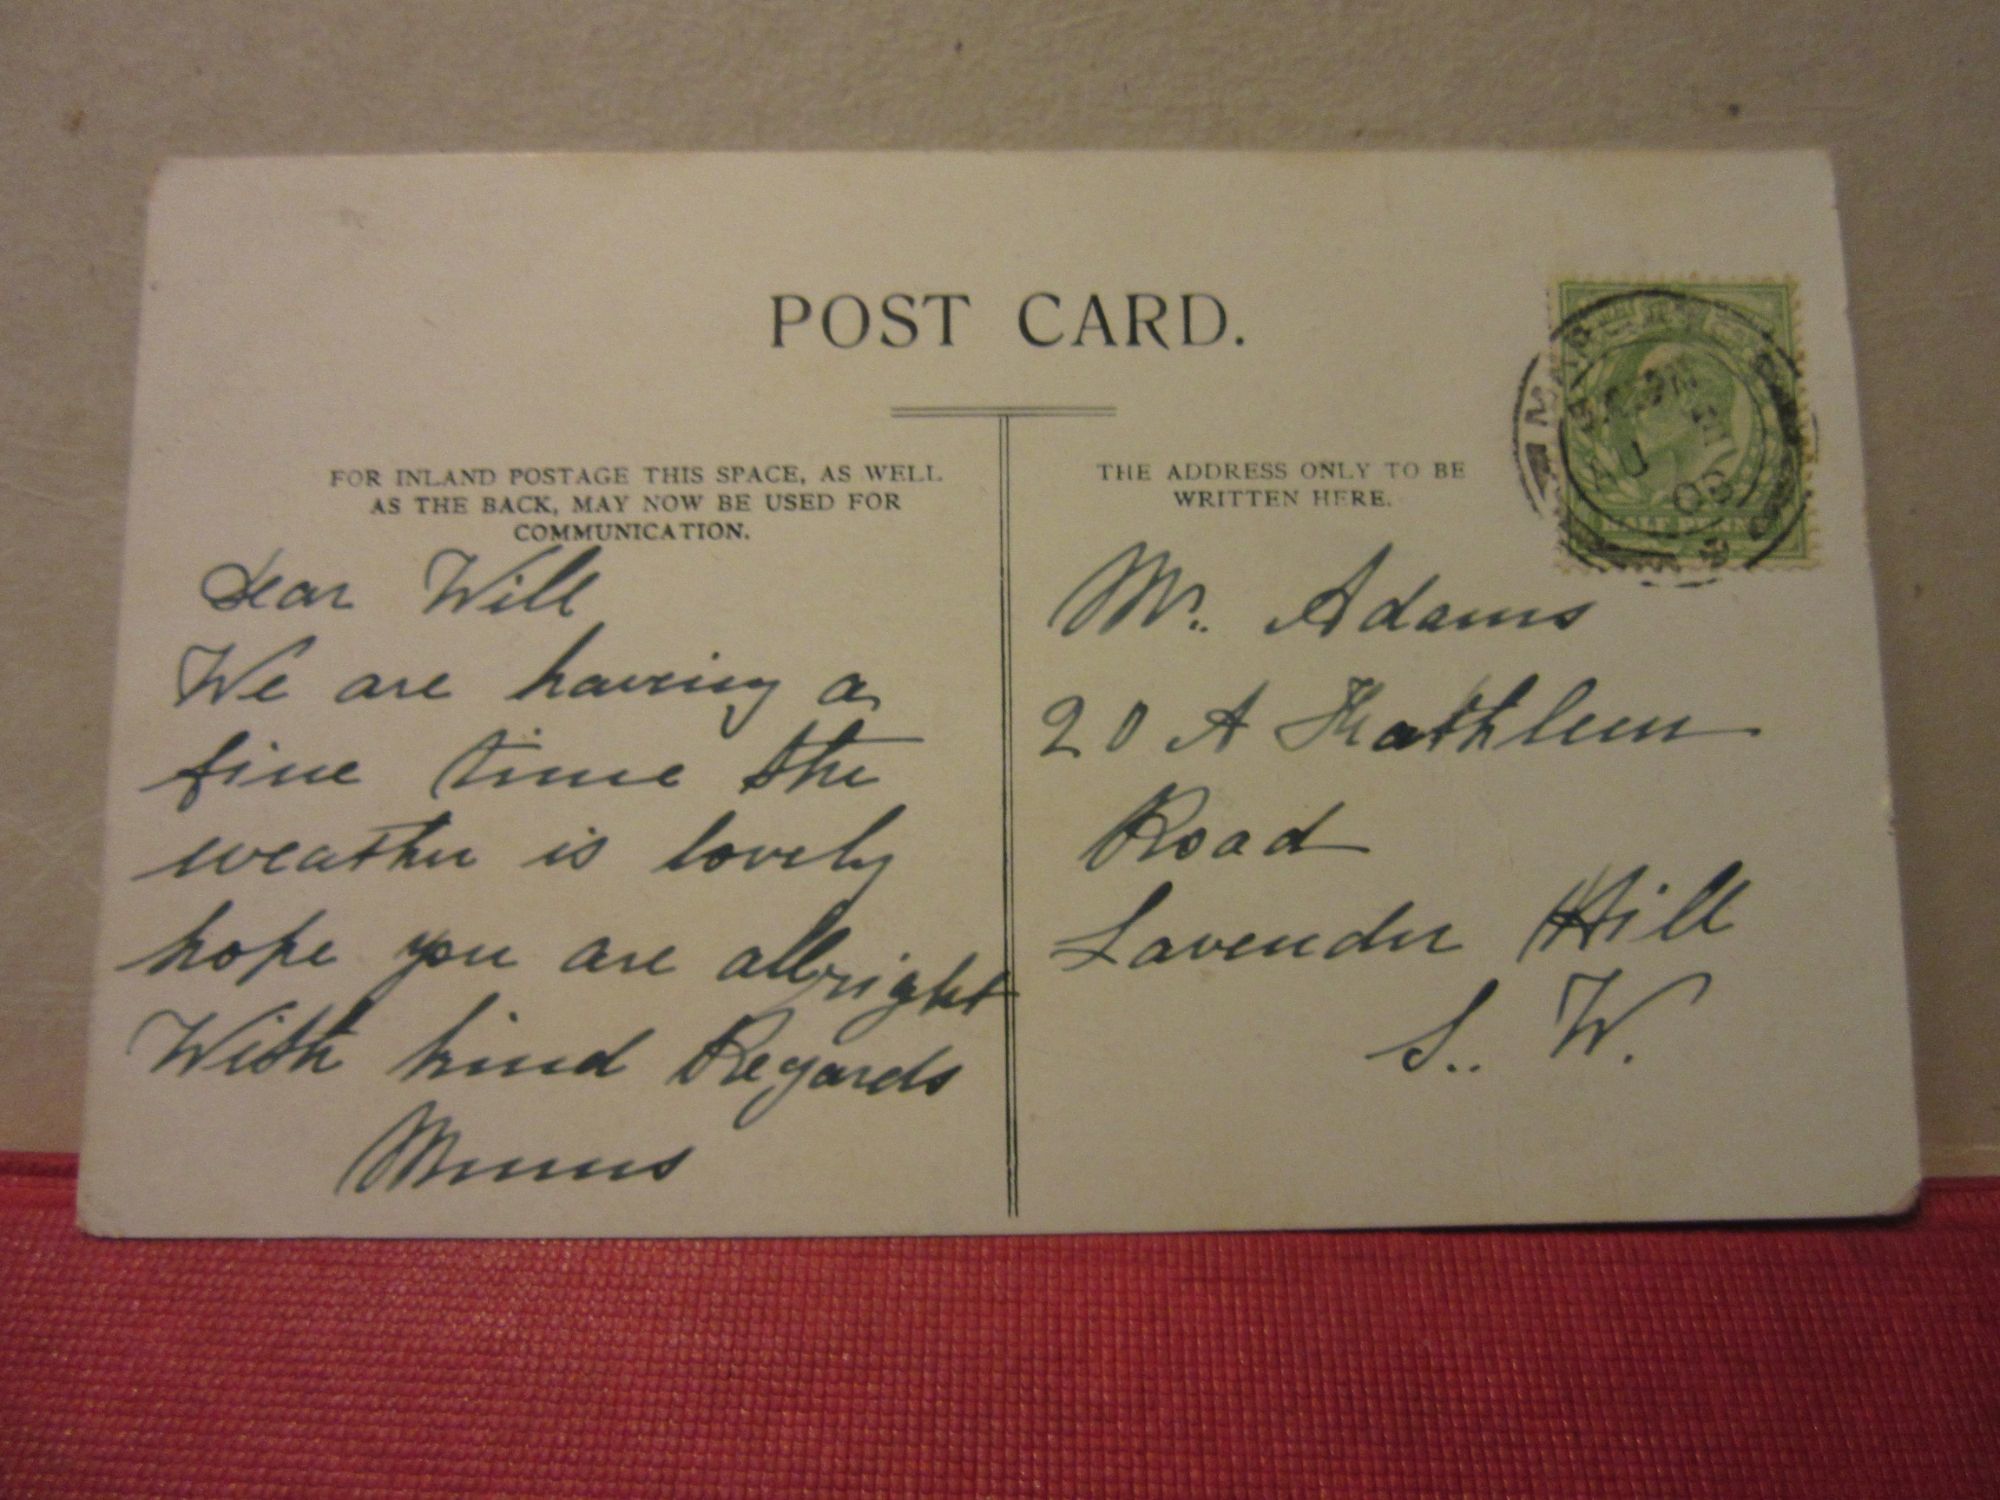 POST CARD.
FOR INLAND POSTAGE THIS SPACE, AS WELL
AS THE BACK, MAY NOW BE USED FOR
COMMUNICATION.
Dear Will
We are having a
fine time the
weather is lovely
hope you are allright
With kind Regards
THE ADDRESS ONLY TO BE
WRITTEN HERE.
Mr. Adams
20 A Kathleen
Road
Lavender Hill
S. W.
MARGATE
AU
09
HALF PENNY